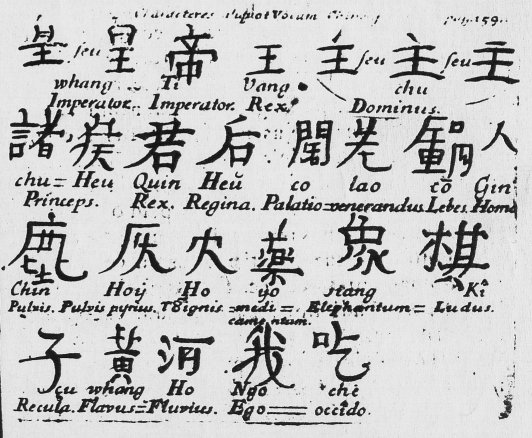 Characteres Vocum
皇 seu 皇 帝 王 主 seu 主 seu 主
whang Ti Vang chu
Imperator. Imperator. Rex. Dominus.
諸 侯 君 后 閣 老 鍋 人
chu= Heu Quin Heŭ co lao cō Gin
Princeps. Rex. Regina. Palatio=venerandus Lebes Homo
塵 灰 火 藥 象 棋
Chin Hoŷ Ho yo siang Kî
Pulvis. Pulvis pyrius. Ignis =medi= Elephantum= Ludus.
camentum.
子 黃 河 我 吃
çu whang Ho Ngo chè
Recula. Flavus=Fluvius. Ego== occido.